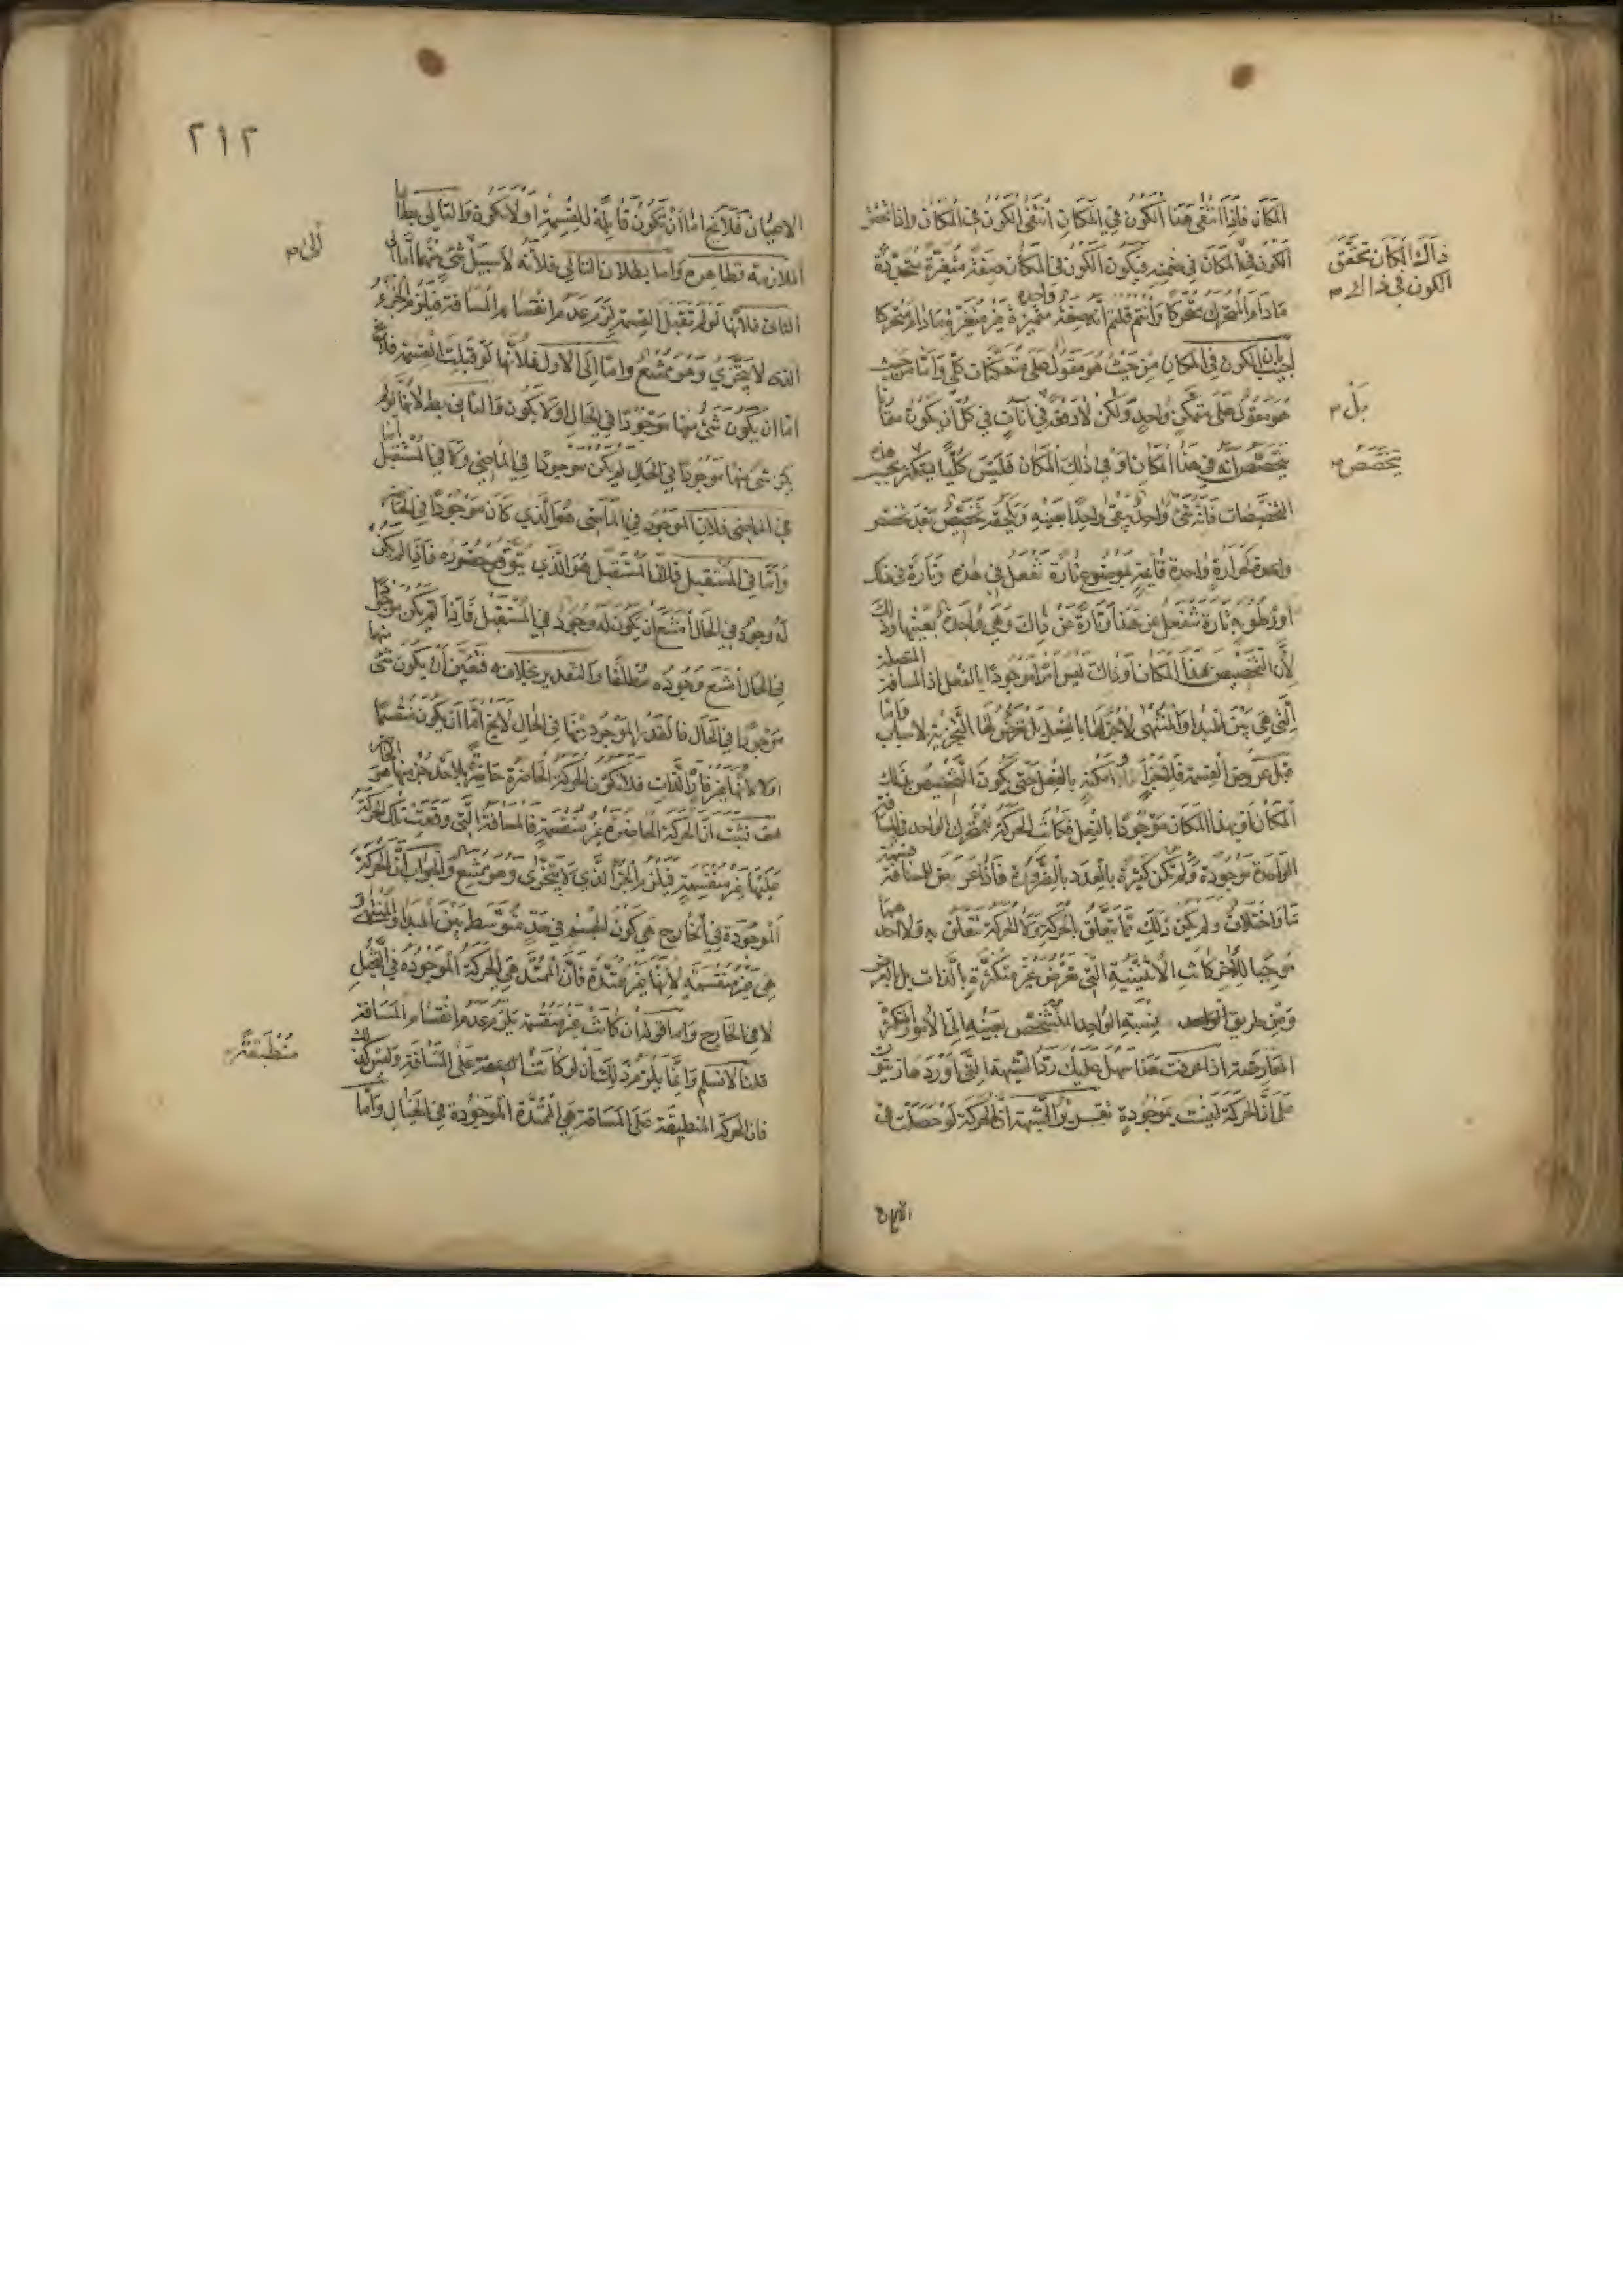 المكان فاذا انتفى هذا الكون في المكان انتفى الكون في المكان واذا تحقق
ذاك المكان تحقق
الكون في ذاك
الكون في المكان في ضمنه فيكون الكون في المكان صفة متغيرة متجددة
ما دام المتحرك متحركا وانتم قلتم انه صفة واحدة متميزة غير متغيرة ما دام متحركا
اجيب بان الكون في المكان من حيث هو مقول على متمكنات كلي واما من حيث
هو مقول على متمكن واحد ولكن لا دفعة في آنات في كل آن يكون مقا
بل
يتخصص انه في هذا المكان او في ذلك المكان فليس كليا ليتكثر بحسب هذه
يتخصص
التخصصات فانه شيء واحد يبقى واحدا بعينه ويلحقه تخصيص بعد تخصص
واحدة كحرارة واحدة قايمة بموضوع تارة تفعل في هذه وتارة في تلك
او رطوبة تارة تنفعل من هذا وتارة عن ذاك وهي واحدة بعينها وذلك
لأن التخصيص بهذا المكان او ذاك ليس امرا موجودا بالفعل اذ المسافة المتصلة
التي هي بين المبدا والمنتهى لا جزء لها بالفعل بل تعرض لها التجزية لاسباب واما
قبل عروض القسمة فلا جزء امكنة بالفعل حتى يكون التخصيص بذلك
المكان او بهذا المكان موجودا بالفعل فكانت الحركة للمتحرك الواحد في المسافة
الواحدة موجودة ولم تكن كثيرة بالعدد بالضرورة فاذا عرض للمسافة قسمة
ما واختلاف ولم يكن ذلك مما يتعلق بالحركة ولا الحركة تتعلق به ولا احدهما
موجبا للآخر كانت الاثنينية التي تعرض غير متكثرة بالذات بل بالعرض
ومن طريق نسبة الواحد المتشخص بعينه الى الامور المتكثرة
العارضة اذا عرفت هذا سهل عليك رد الشبهة التي اوردها زينون
على ان الحركة ليست بموجودة تقرير الشبهة ان الحركة لو حصلت في
الاعيان
٢١٢
الاعيان فلا يخ اما ان تكون قابلة للقسمة او لا تكون والتالي بط اما
الملازمة فظاهرة واما بطلان التالي فلأنه لا سبيل شيء منهما اما
الى
الثاني فلأنها لو لم تقبل القسمة لزم عدم انقسام المسافة فيلزم الجزء
الذي لا يتجزى وهو ممتنع واما الى الاول فلأنها لو قبلت القسمة فلا يخ
اما ان يكون شيء منها موجودا في الحال او لا يكون والثاني بط لانها لو لم
يكن شيء منها موجودا في الحال لم يكن موجودا في الماضي ولا في المستقبل اما
في الماضي فلان الموجود في الماضي هو الذي كان موجودا في الحال
واما في المستقبل فلان المستقبل هو الذي يتوقع حضوره فاذا لم يكن
له وجود في الحال امتنع ان يكون له وجود في المستقبل فاذا لم يكن موجودا
في الحال امتنع وجوده مطلقا والتقدير بخلافه فتعين ان يكون شيء منها
موجودا في الحال فالقدر الموجود منها في الحال لا يخ اما ان يكون منقسما
اولا لانها غير قارة الذات فلا تكون الحركة الحاضرة حاضرة بل احد جزئيها
هف فثبت ان الحركة الحاضرة غير منقسمة فالمسافة التي وقعت تلك الحركة
عليها غير منقسمة فيلزم الجزء الذي لا يتجزى وهو ممتنع والجواب ان الحركة
الموجودة في الخارج هي كون الجسم في حد متوسط بين المبدا والمنتهى و
هي غير منقسمة لانها غير ممتدة فان الممتد هي الحركة الموجودة في التخيل
لا في الخارج واما قوله ان كانت غير منقسمة يلزم عدم انقسام المسافة
قلنا لا نسلم وانما يلزم ذلك ان لو كانت منطبقة على المسافة وليس كذلك
منطبقة
فان الحركة المنطبقة على المسافة هي الممتدة الموجودة في الخيال واما